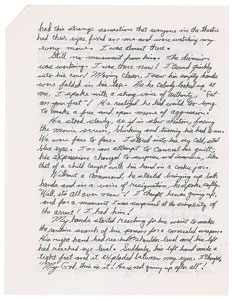 had this strange sensation that everyone in the theatre
had their eyes fixed on me and were watching my
every move. I was almost there.
Still no movement from him. The diversion
was working. I was there now! I turned quickly
into his row! Moving closer, I saw his empty hands
were folded in his lap. As he calmly looked up at
me, I spoke with a low voice of authority, "Get
on your feet"! He realized he had waited too long
to make a bold and open move of aggression.
He stood slowly, as if in slow motion, facing
the movie screen, blinking and turning his head
we were face to face. I stared into his icy cold steel
blue eyes. In an attempt to conceal his guilt,
his expression changed to surprise and wonder, like
that of a child caught with his hand in a cookie jar.
Without a command, he started bringing up both
hands and in a voice of resignation, he spoke softly,
"Well, it's all over now"! I thought he was giving up
and for a moment I was surprised at the simplicity of
the arrest! I had him!
My hands started reaching for his waist to make
the routine search of his person for a concealed weapon.
His right hand had reached shoulder level and his left
had reached eye level. Suddenly, his left hand made a
tight fist and it exploded between my eyes. I thought,
My God, this is it! He is not giving up after all!